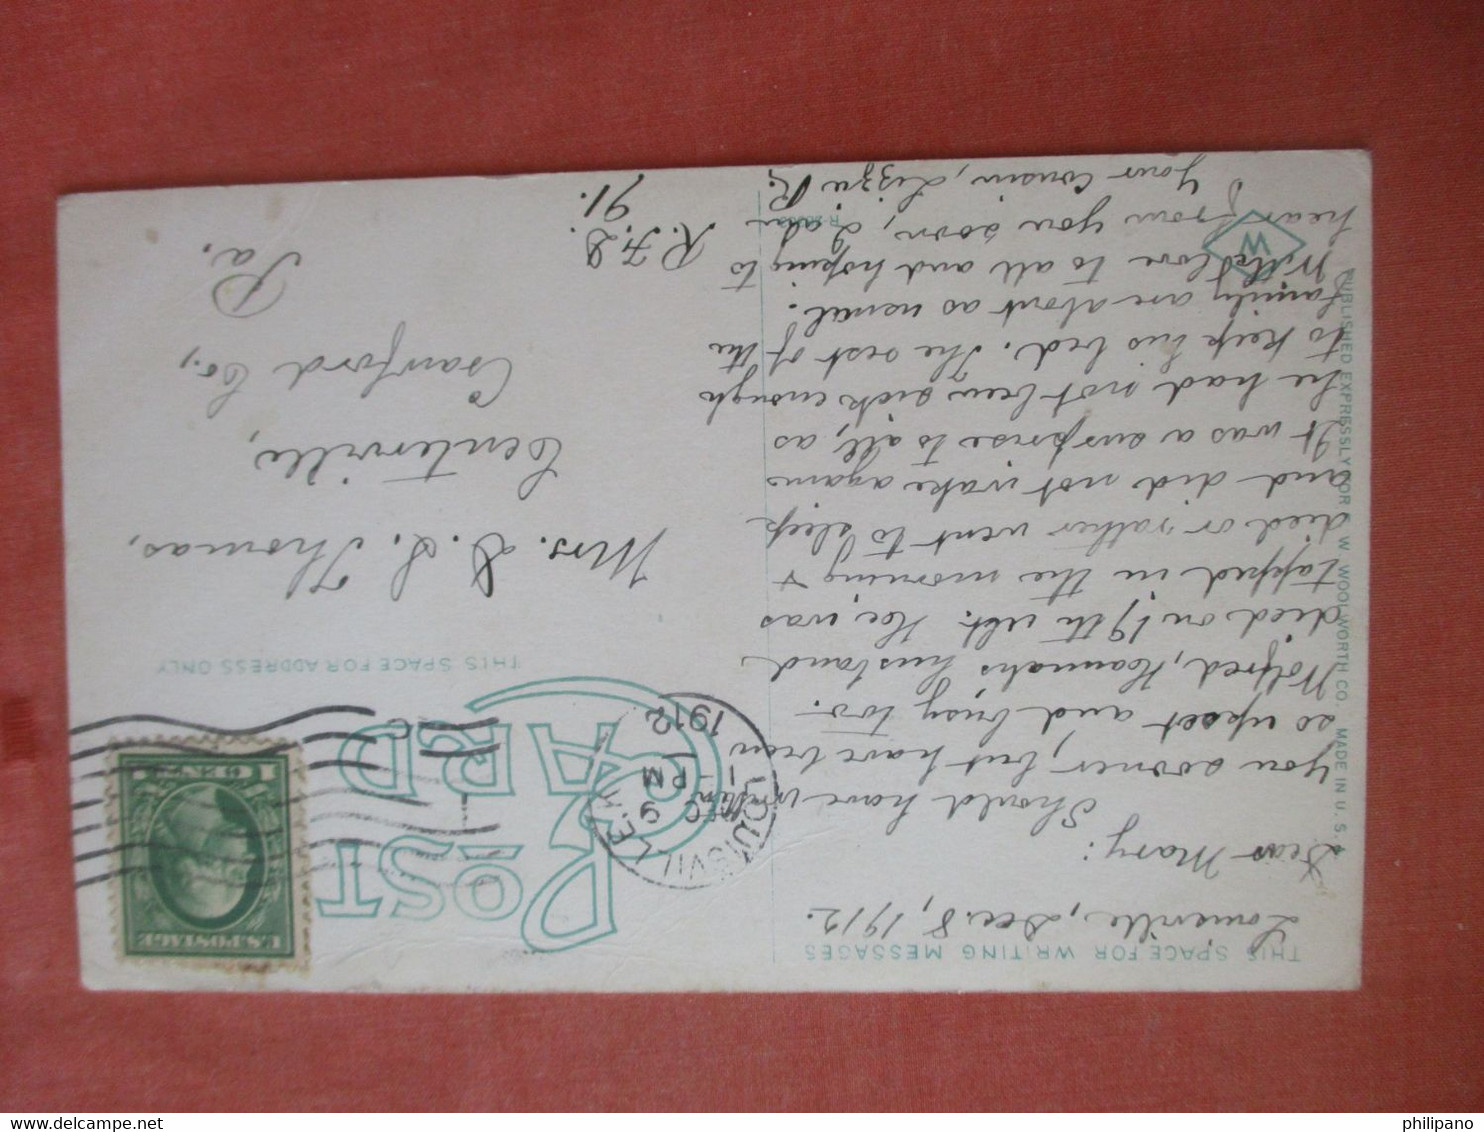 THIS SPACE FOR WRITING MESSAGES
Louisville, Dec. 8, 1912.
Dear Mary:
Should have written
you sooner, but have been
so upset and busy too.
Wolfred, Hannah's husband
died on 19th ult. He was
tapped in the morning &
died or rather went to sleep
and did not wake again
It was a surprise to all, as
he had not been sick enough
to keep his bed. The rest of the
family are about as usual.
With love to all and hoping to
hear from you soon, I am
Your Cousin, Lizzie R.
POST
CARD
THIS SPACE FOR ADDRESS ONLY
LOUISVILLE
DEC 9
1-PM
1912
U.S. POSTAGE
1 CENT 1
Mrs. D. L. Thomas,
Centerville,
Crawford Co.,
Pa.
R. F. D.
91.
PUBLISHED EXPRESSLY FOR F. W. WOOLWORTH CO. MADE IN U. S. A.
W
philipano